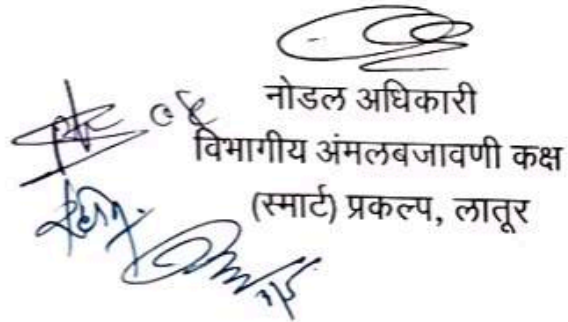 नोडल अधिकारी
विभागीय अंमलबजावणी कक्ष
(स्मार्ट) प्रकल्प, लातूर